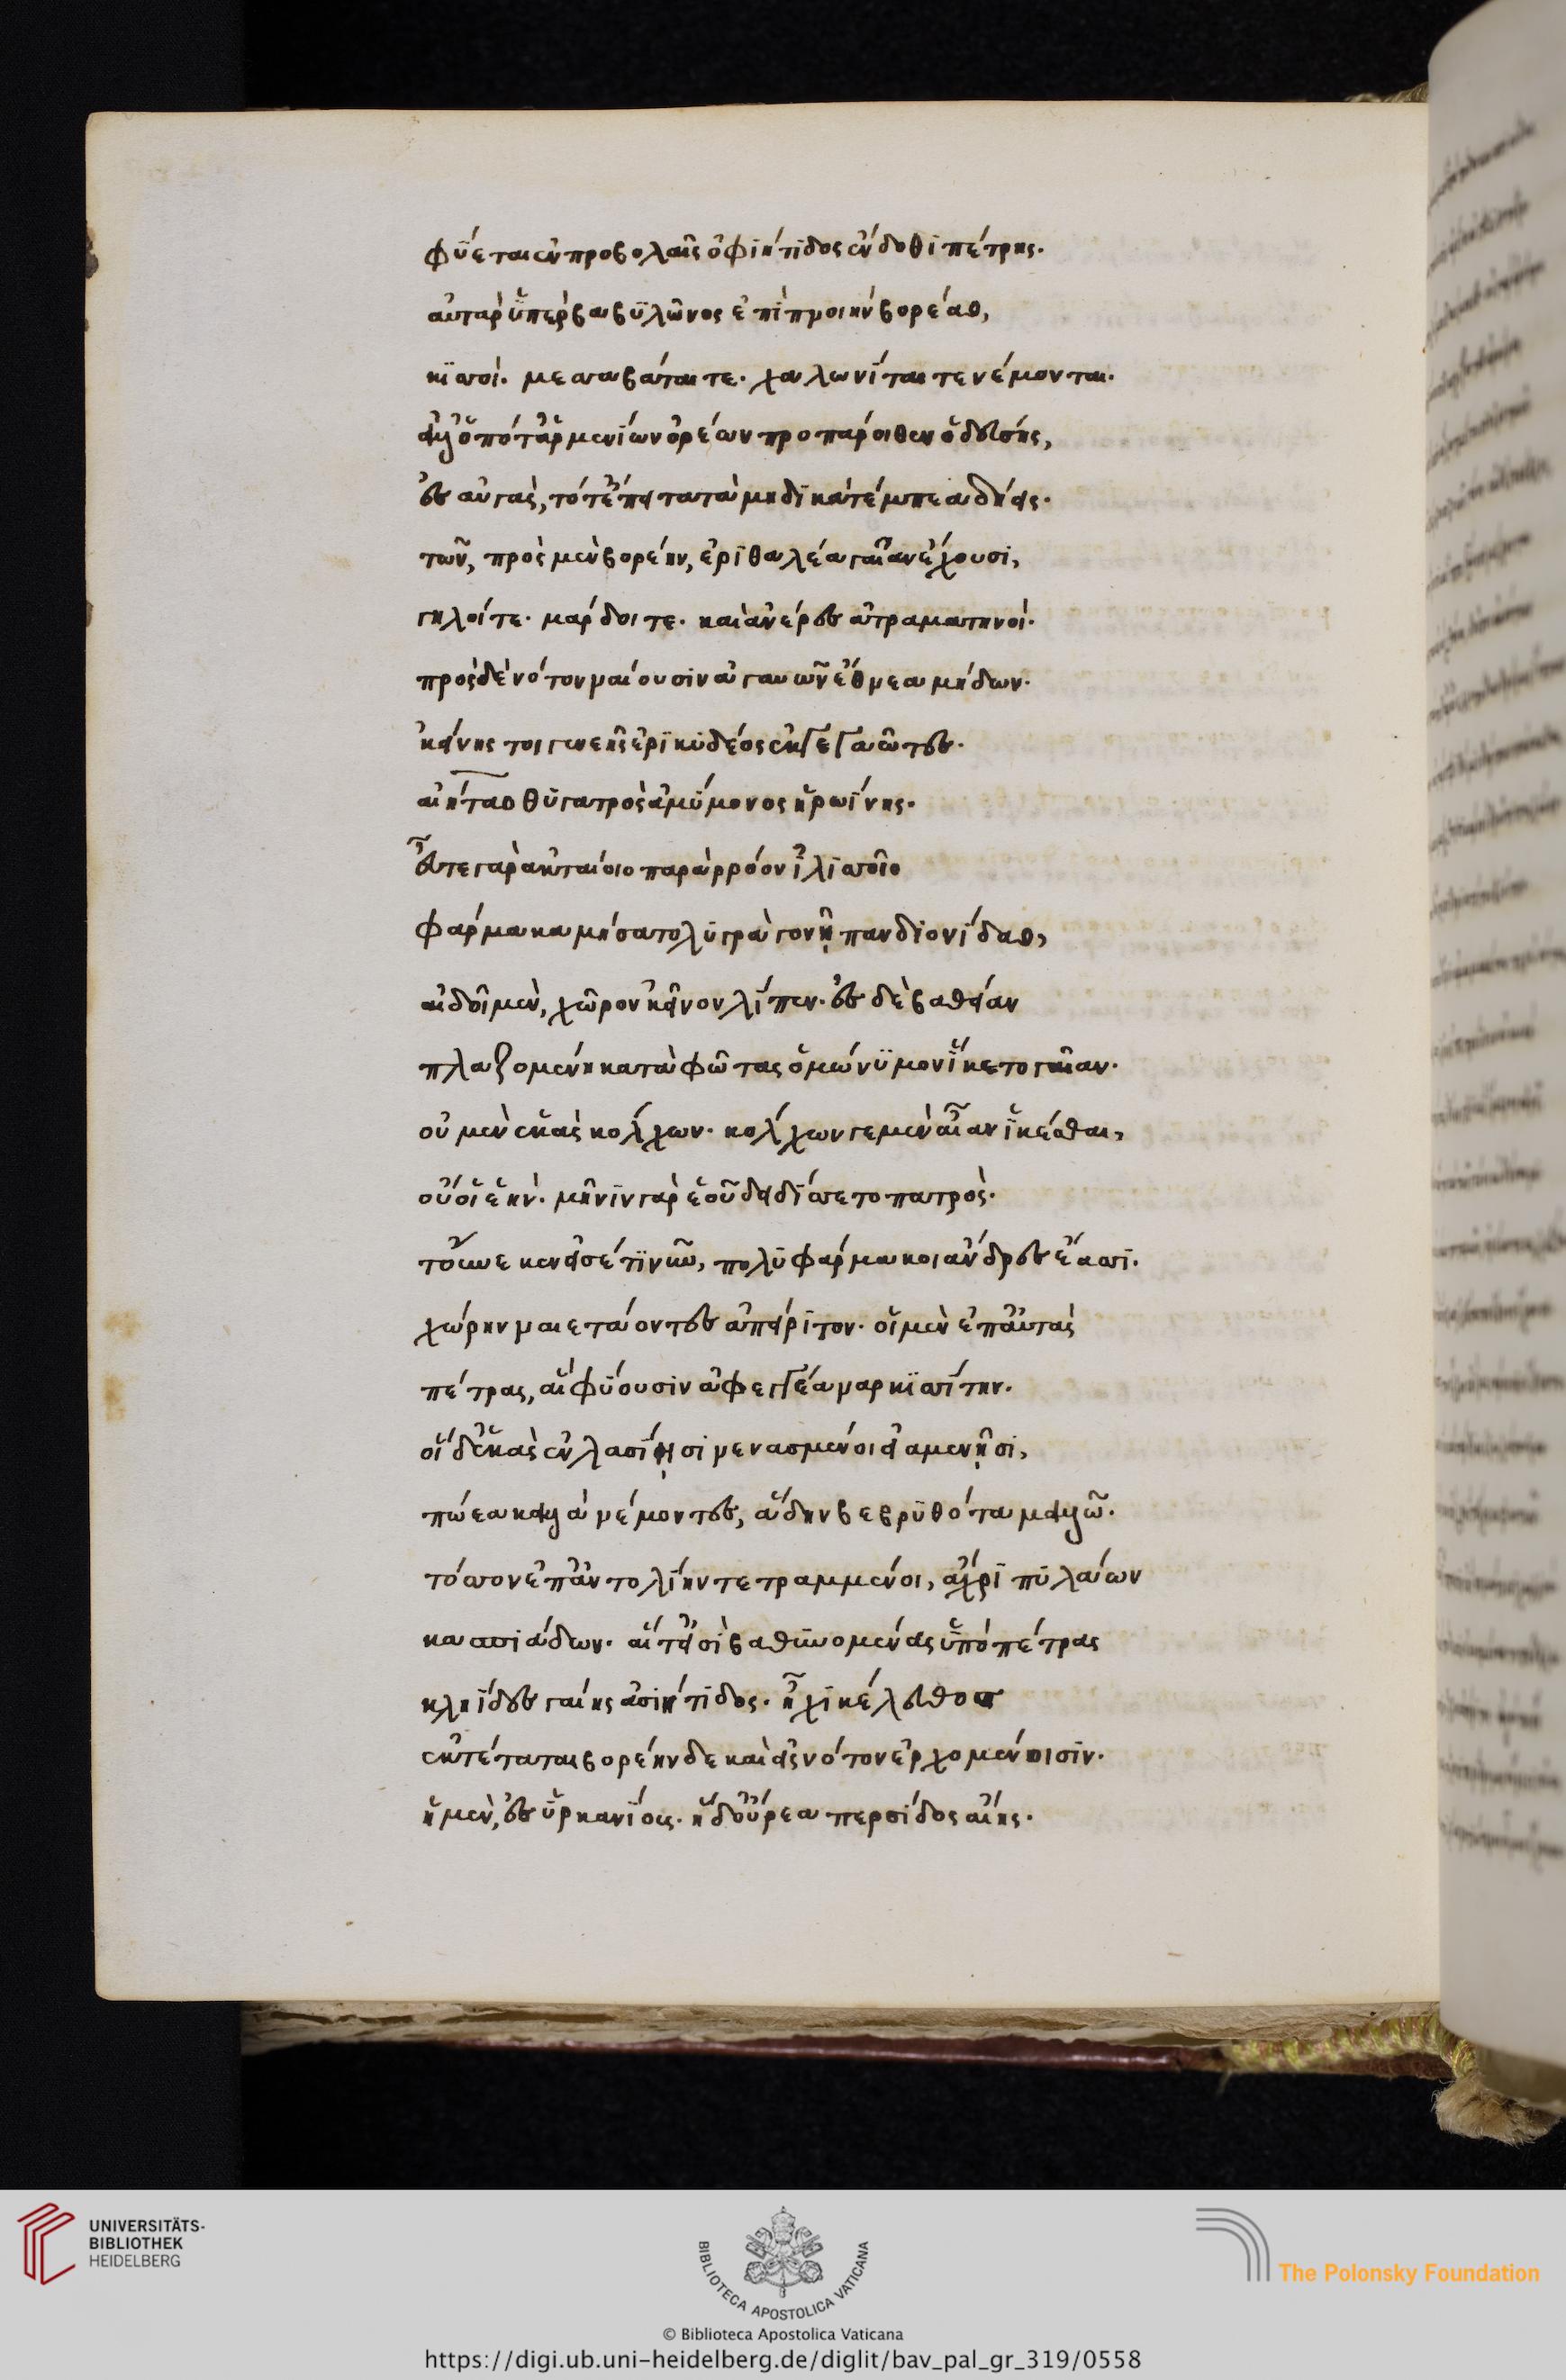 φύεται ἐν προβολαῖς ὀφιήτιδος ἔνδοθι πέτρης.
αὐτὰρ ὑπὲρ βαβυλῶνος ἐπὶ πνοιὴν βορέαο,
κισσοί. μεσσαβάται τε. χαλωνίται τε νέμονται.
ἀλλ' ὁπότ' ἀρμενίων ὀρέων προπάροιθεν ὁδεύσης,
ἐς αὐγὰς, τότ' ἔπειτα τὰ μηδικὰ τέμπεα δήεις.
τῶν, πρὸς μὲν βορέην, ἐριθαλέα γαῖαν ἔχουσι,
γηλοί τε. μάρδοι τε. καὶ ἀνέρες ἀτραματηνοί.
πρὸς δὲ νότον ναίουσιν ἀγαυῶν ἔθνεα μήδων.
κείνης τοι γενεῆς ἐρικυδέος ἐκγεγαῶτες.
αἰήταο θυγατρὸς ἀμύμονος ἡρωίνης.
εὖτε γὰρ ἀκταίοιο παρὰ ρρόον ἰλισσοῖο
φάρμακα μήσατο λυγρὰ γονῇ πανδιονίδαο,
αἰδοῖ μὲν, χῶρον κεῖνον λίπεν. ἐς δὲ βαθεῖαν
πλαζομένη κατὰ φῶτας ὁμώνυμον ἵκετο γαῖαν.
οὐ μὲν ἑκὰς κόλχων. κόλχων γε μὲν αἶαν ἱκέσθαι,
οὔ οἱ ἕην. μῆνιν γὰρ ἑοῦ δειδίσσετο πατρός.
τοὔνεκεν εἰσέτι νῦν, πολυφάρμακοι ἄνδρες ἔασσι.
χώρην ναιετάοντες ἀπείριτον. οἱ μὲν ἐπ' αὐτὰς
πέτρας, αἳ φύουσιν ἀφεγγέα ναρκισσίτην.
οἱ δ' ἑκὰς ἐν λασίῃσι νενασμένοι εἱαμενῇσι,
πώεα καλὰ νέμοντες, ἅδην βεβριθότα μαλλῶ.
τόσσον ἐπ' ἀντολίην τετραμμένοι, ἄχρι πυλάων
κασπιάδων. αἵ τ' εἰσὶ βαθυνομέναις ὑπὸ πέτραις
κληίδες γαίης ἀσιήτιδος. ἧχι κέλευθος
ἐκτέταται βορέην δε καὶ εἰς νότον ἐρχομένοισιν.
ἡ μὲν, ἐς ὑρκανίους. ἡ δ' οὔρεα περσίδος αἴης.
UNIVERSITÄTS-
BIBLIOTHEK
HEIDELBERG
BIBLIOTECA APOSTOLICA VATICANA
© Biblioteca Apostolica Vaticana
The Polonsky Foundation
https://digi.ub.uni-heidelberg.de/diglit/bav_pal_gr_319/0558